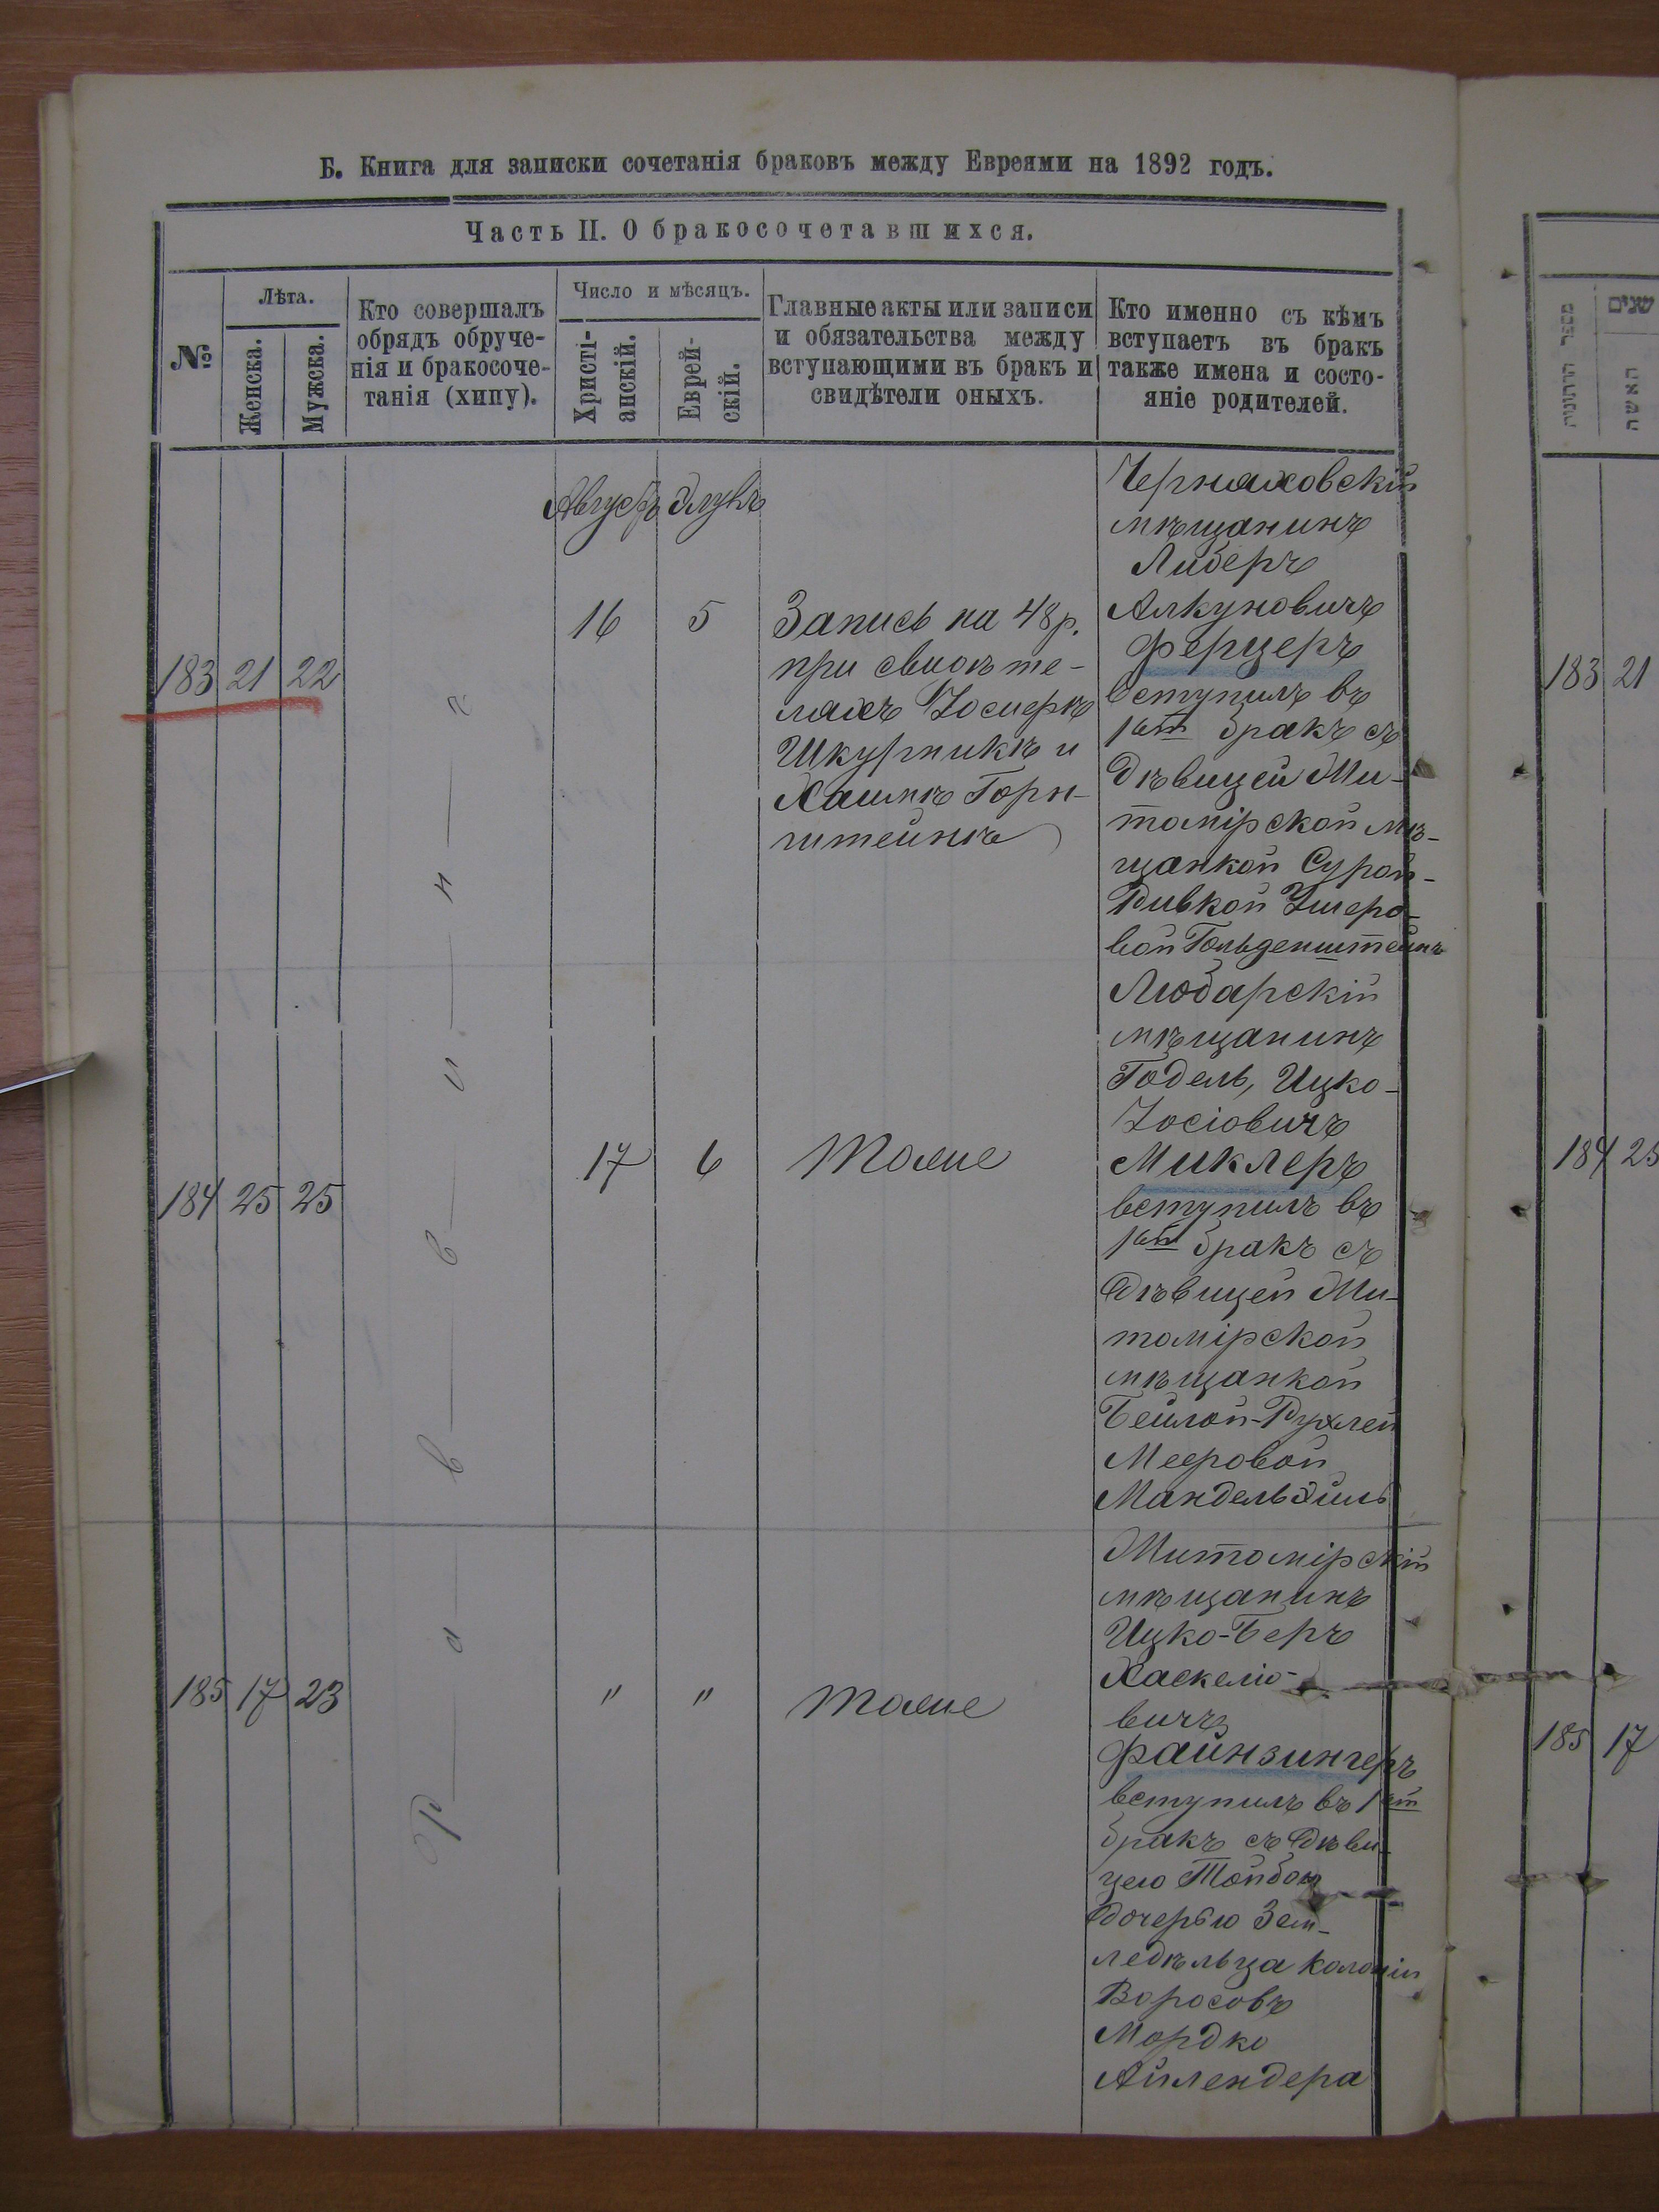 Б. Книга для записки сочетанія браковъ между Евреями на 1892 годъ.
Часть II. О бракосочетавшихся.
№
Лѣта.
Женска.
Мужска.
Кто совершалъ
обрядъ обруче-
нія и бракосоче-
танія (хипу).
Число и мѣсяцъ.
Христі-
анскій.
Еврей-
скій.
Главные акты или записи
и обязательства между
вступающими въ бракъ и
свидѣтели оныхъ.
Кто именно съ кѣмъ
вступаетъ въ бракъ
также имена и состо-
яніе родителей.
Августъ Элулъ
183 21 22
16 5
Запись на 48 р.
при свидѣте-
ляхъ Іосифѣ
Шкурникѣ и
Хаимѣ Горн-
штейнѣ
Черняховскій
мѣщанинъ
Либеръ
Алкуновичъ
Ферцеръ
вступилъ въ
1ый бракъ съ
дѣвицей Жи-
томірской мѣ-
щанкой Сурой-
Ривкой Ушеро-
вой Гольденштейнъ
184 25 25
17 6
Тоже
Любарскій
мѣщанинъ
Годель, Ицко-
Іосіовичъ
Миклеръ
вступилъ въ
1ый бракъ съ
дѣвицей Жи-
томірской
мѣщанкой
Бейлой-Рухлей
Мееровой
Мандельзиль
185 17 23
" "
тоже
Житомірскій
мѣщанинъ
Ицко-Беръ
Хаскеліо-
вичъ
Файнзингеръ
вступилъ въ 1ый
бракъ съ дѣви-
цею Тойбою
дочерью Зем-
ледѣльца колоніи
Воросовъ
Мордко
Айлендера
Р—а—в—в—и—н—ъ
מספר החתונות
שנים
האשה
183 21
184 25
185 17